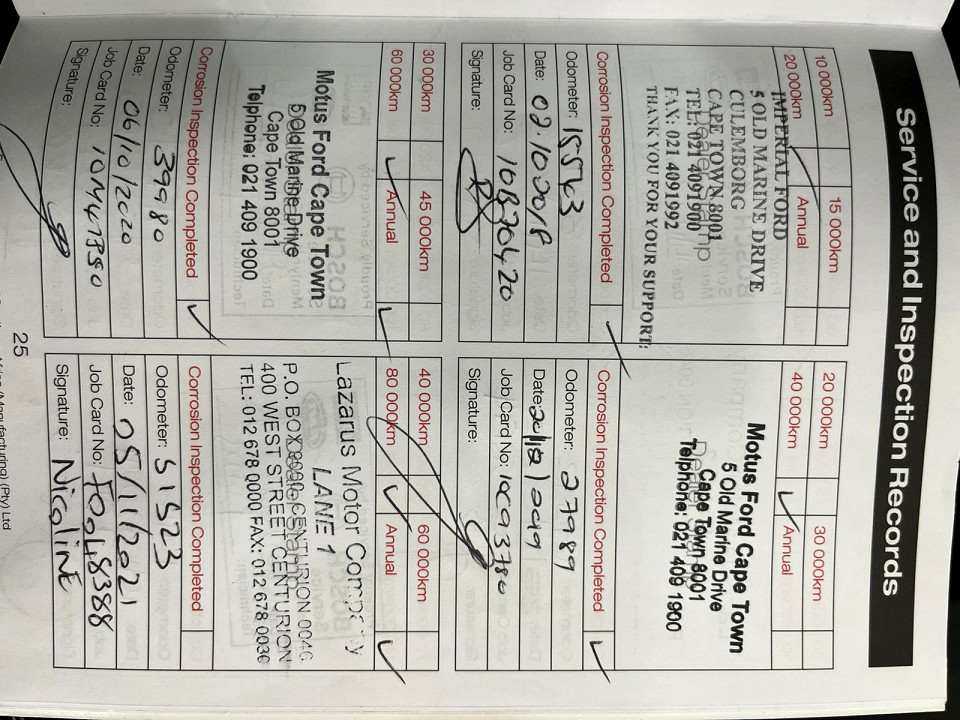 Service and Inspection Records
10 000km 15 000km
20 000km Annual
IMPERIAL FORD
5 OLD MARINE DRIVE
CULEMBORG
CAPE TOWN 8001
TEL: 021 4091900
FAX: 021 4091992
THANK YOU FOR YOUR SUPPORT:
Corrosion Inspection Completed
Odometer: 15563
Date: 02.10.2018
Job Card No: 10B70420
Signature:
20 000km 30 000km
40 000km Annual
Motus Ford Cape Town
5 Old Marine Drive
Cape Town 8001
Telphone: 021 409 1900
Corrosion Inspection Completed
Odometer: 27989
Date:
Job Card No:
Signature:
30 000km 45 000km
60 000km Annual
Motus Ford Cape Town
5 Old Marine Drive
Cape Town 8001
Telphone: 021 409 1900
Corrosion Inspection Completed
Odometer: 39980
Date: 06/10/2020
Job Card No:
Signature:
40 000km 60 000km
80 000km Annual
Lazarus Motor Company
LANE 1
P.O. BOX CENTURION 0046
400 WEST STREET CENTURION
TEL.: 012 678 0000 FAX: 012 678 0030
Corrosion Inspection Completed
Odometer: 51523
Date: 05/11/2021
Job Card No:
Signature: Nicoline
25
(Manufacturing) (Pty) Ltd